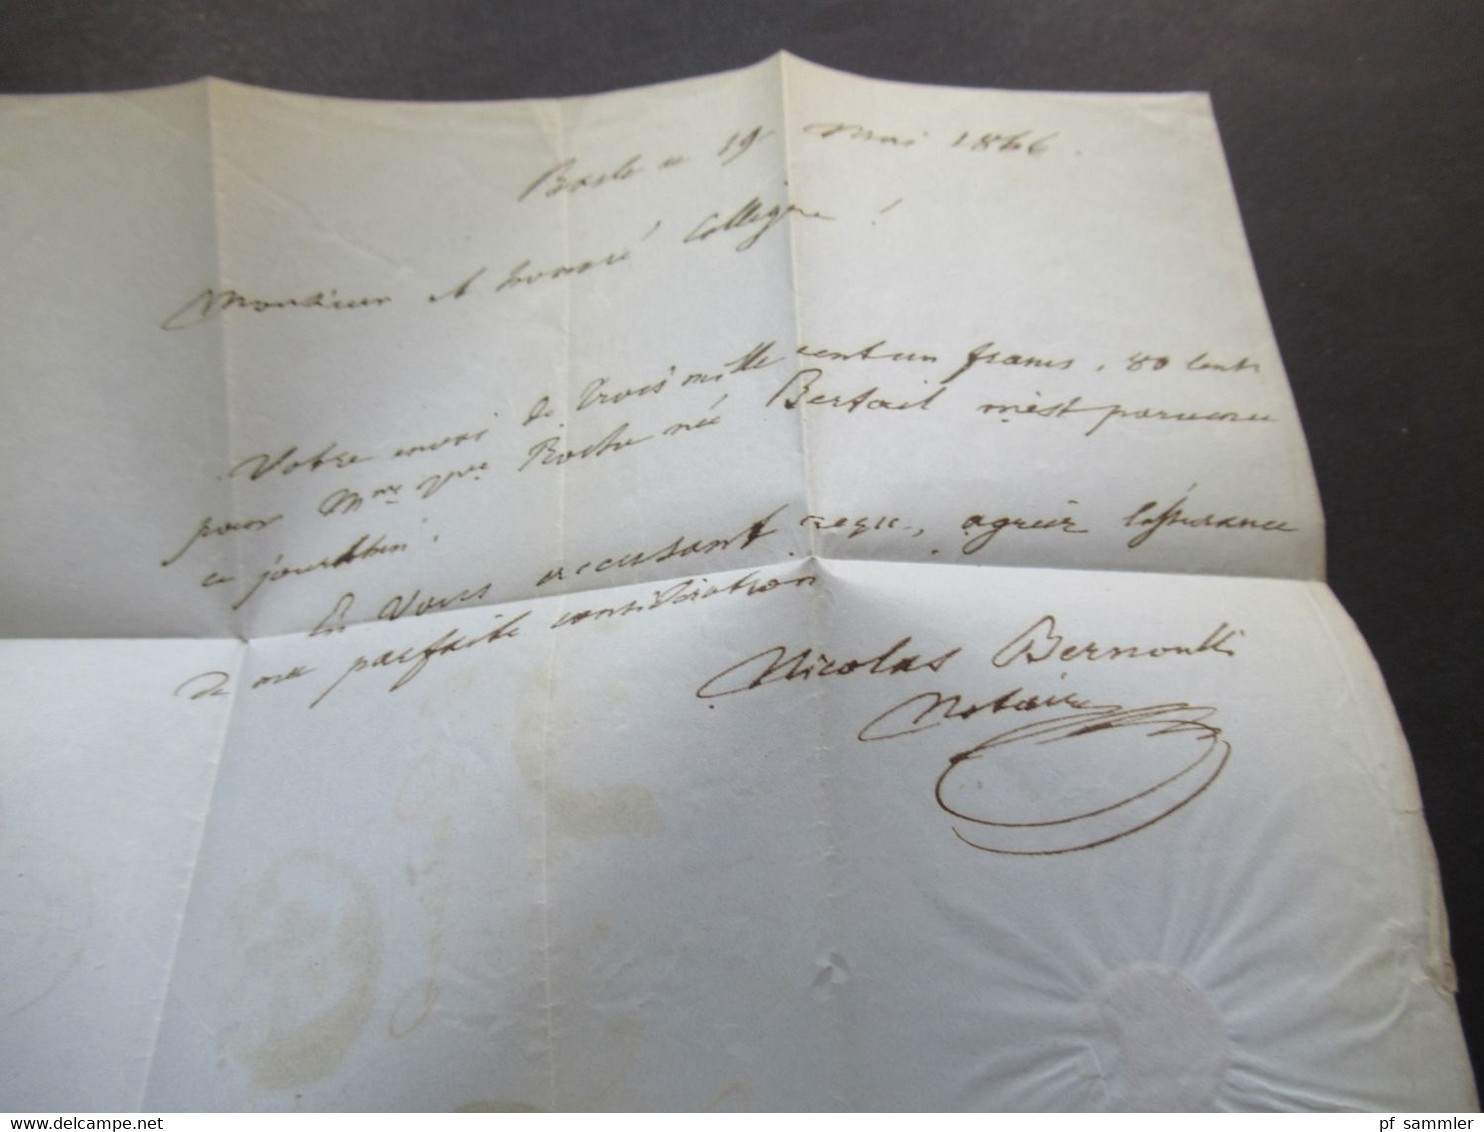 Basle ce 19 Mai 1866.
Monsieur et honoré Collègue!
Votre envoi de Trois mille cent un francs, 80 Cents
pour Mme Vve née Bertail m'est parvenu
ce jourd'hui.
En Vous accusant reçu, agréer l'assurance
de ma parfaite considération
Nicolas Bernoulli
Notaire
pf_sammler